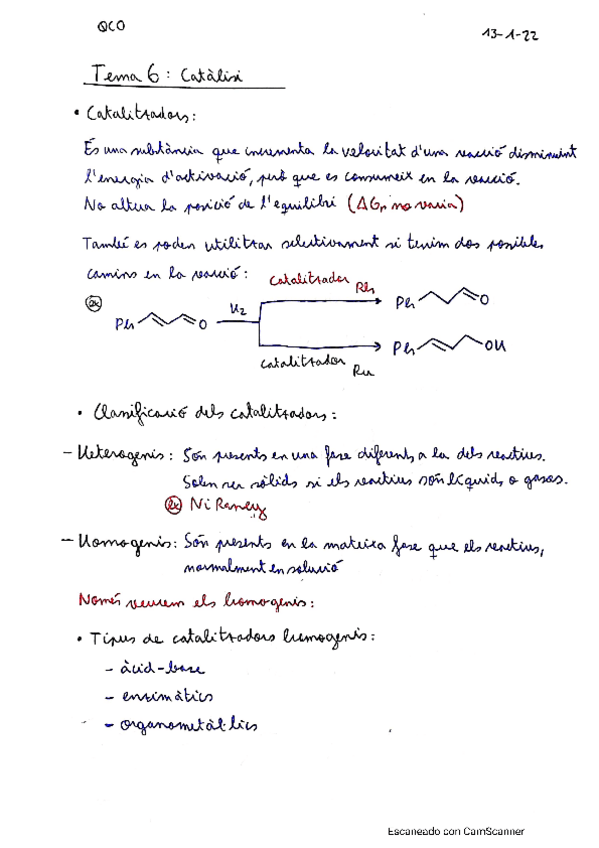 QCO
13-1-22
Tema 6: Catàlisi
• Catalitzadors:
És una substància que incrementa la velocitat d'una reacció disminuint
l'energia d'activació, però que es consumeix en la reacció.
No altera la posició de l'equilibri (ΔGr no varia)
També es poden utilitzar selectivament si tenim dos possibles
camins en la reacció:
ex
catalitzador Rh
Ph O
H2
Ph O
catalitzador Ru
Ph OH
• Classificació dels catalitzadors:
- Heterogenis: Són presents en una fase diferent, a la dels reactius.
Solen ser sòlids si els reactius són líquids o gasos.
ex Ni Raney
- Homogenis: Són presents en la mateixa fase que els reactius,
normalment en solució
Només veurem els homogenis:
• Tipus de catalitzadors homogenis:
- àcid-base
- enzimàtics
- organometàl·lics
Escaneado con CamScanner